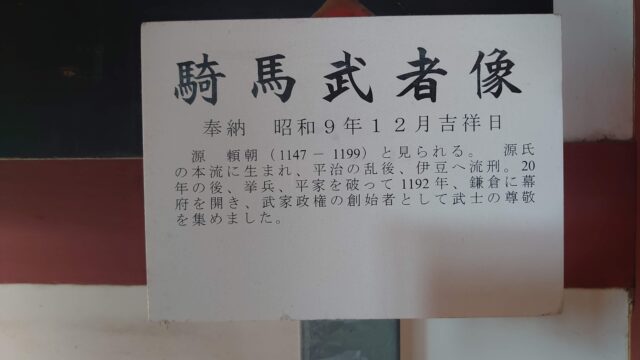 騎馬武者像
奉納　昭和９年１２月吉祥日
　源　頼朝（1147 － 1199）と見られる。　源氏
の本流に生まれ、平治の乱後、伊豆へ流刑。20
年の後、挙兵、平家を破って 1192 年、鎌倉に幕
府を開き、武家政権の創始者として武士の尊敬
を集めました。